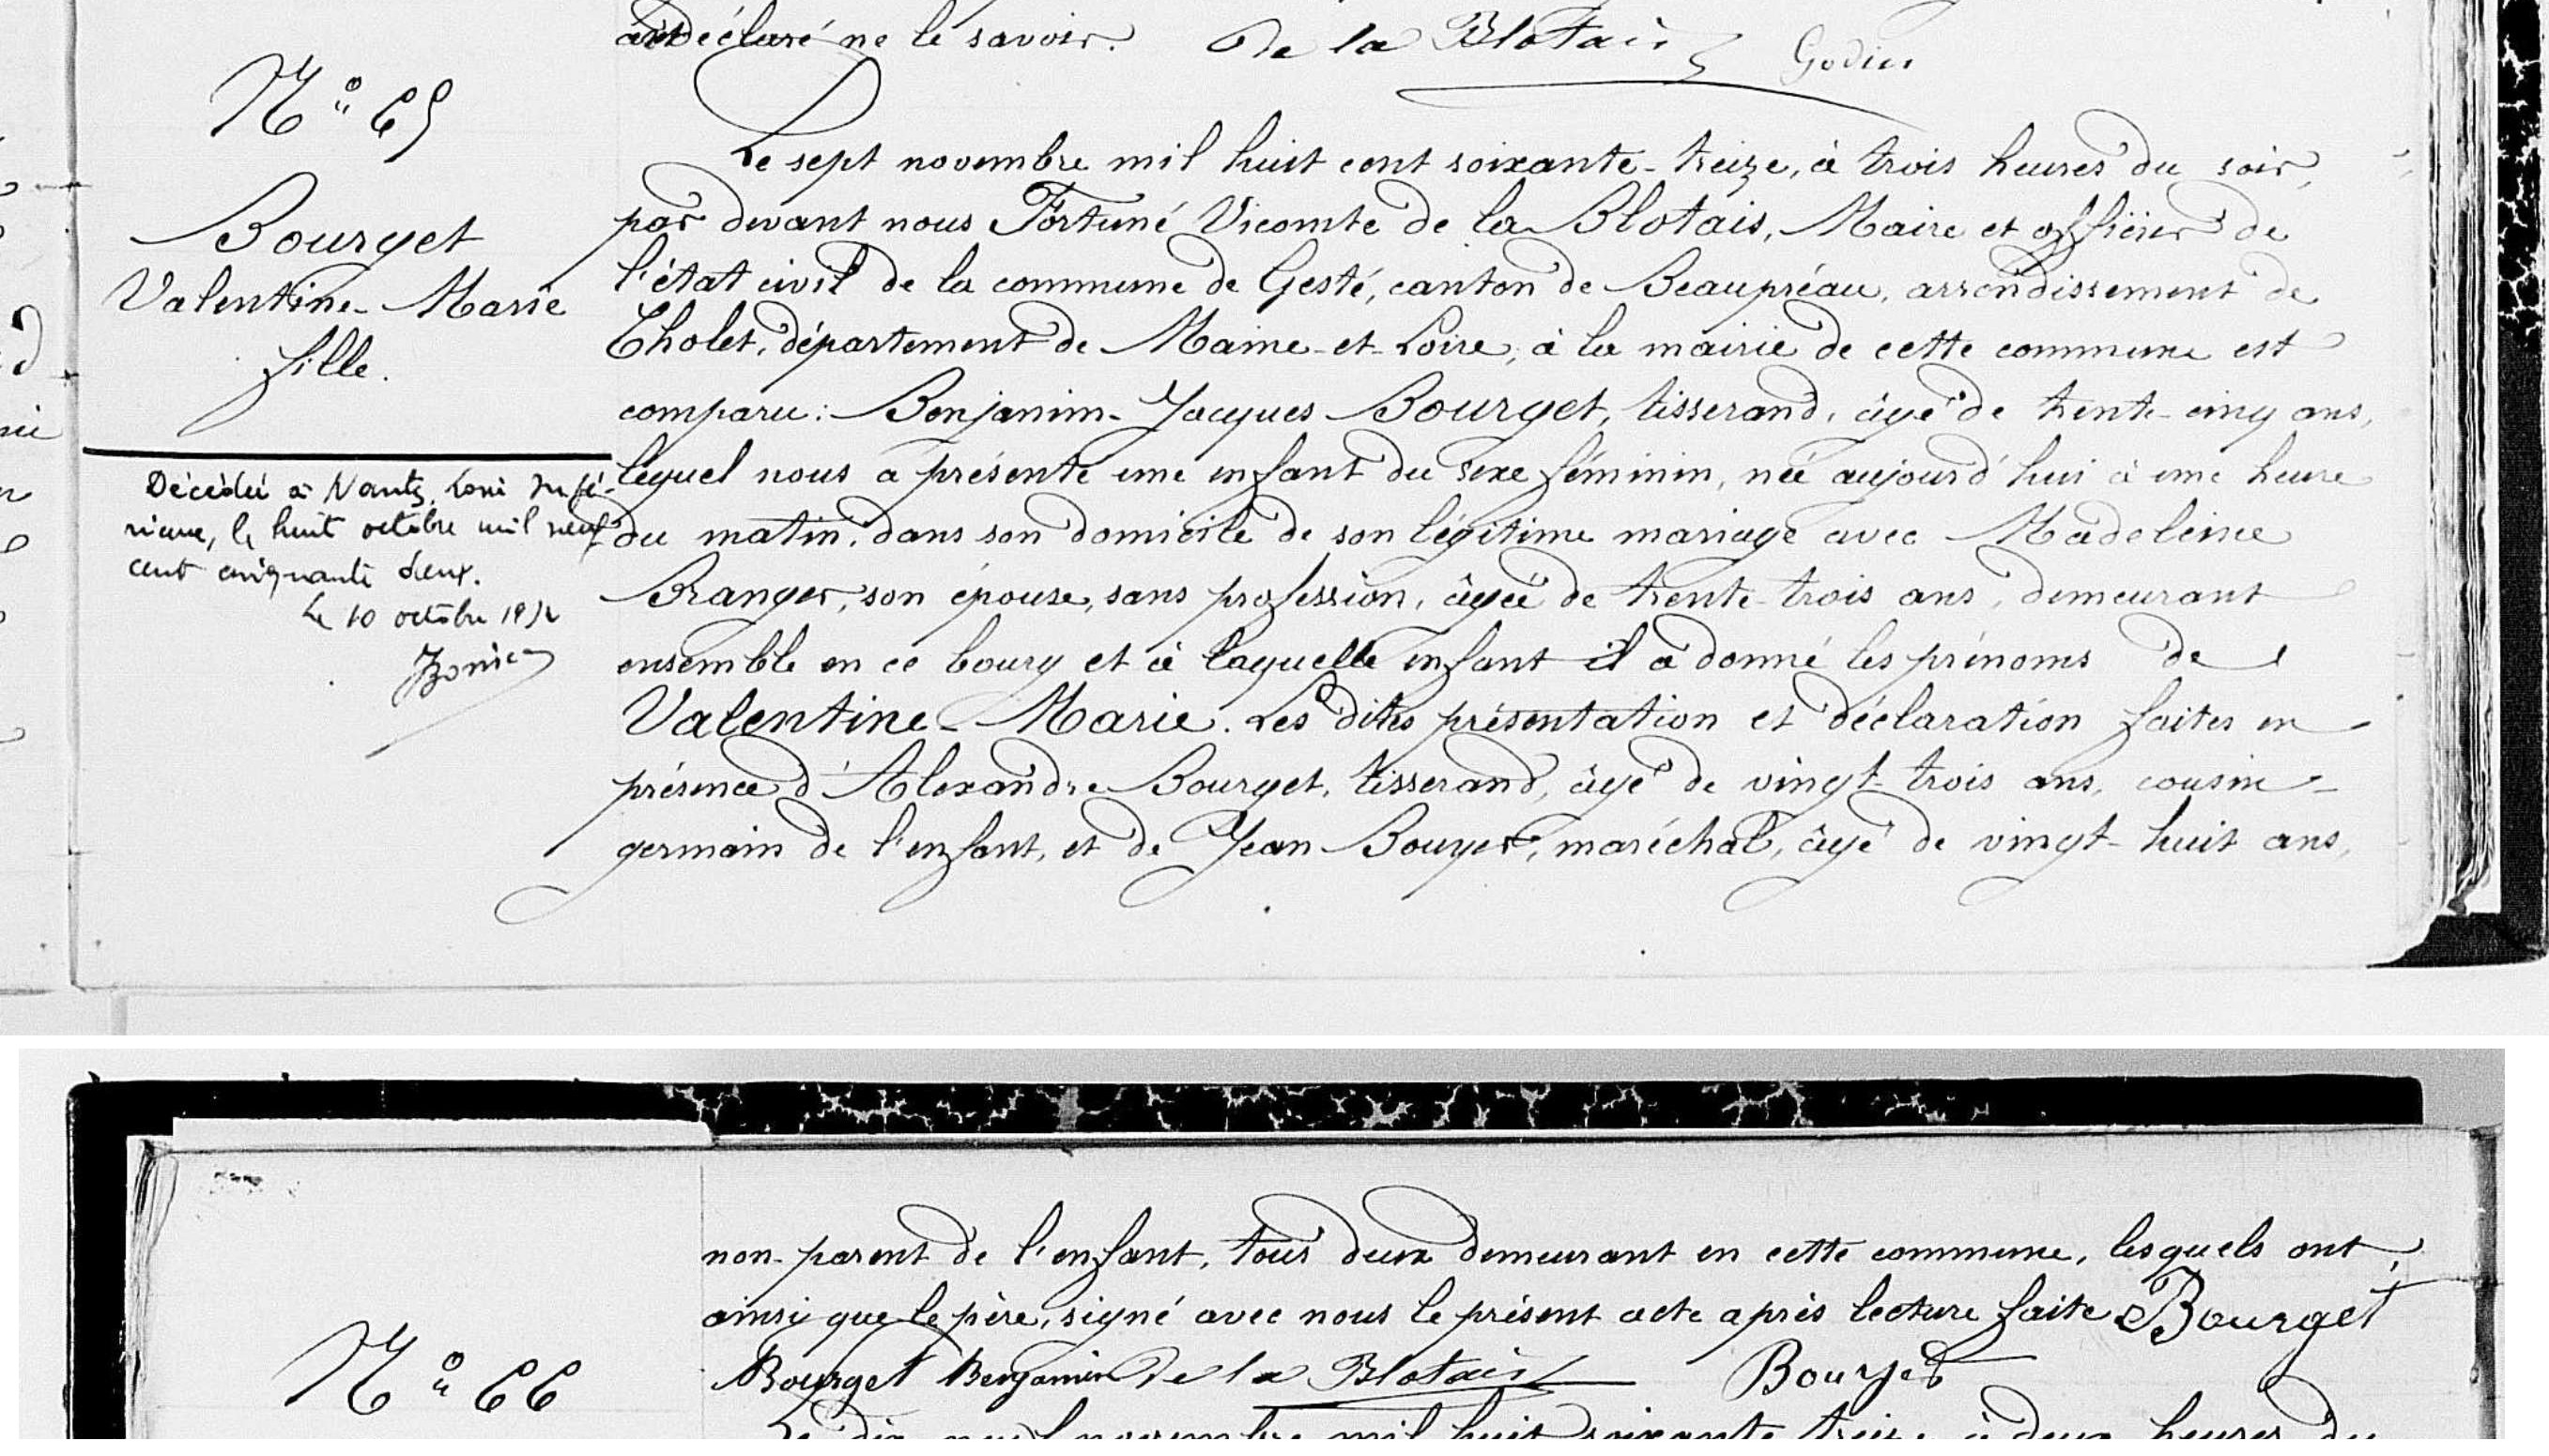 a déclaré ne le savoir. De la Blotais Godin
N° 65
Bourget
Valentine-Marie
fille.
Décédée à Nantes, Loire Infé-
rieure, le huit octobre mil neuf
cent cinquante deux.
Le 10 octobre 1952
Le sept novembre mil huit cent soixante-treize, à trois heures du soir,
par devant nous Fortuné Vicomte de la Blotais, Maire et officier de
l'état civil de la commune de Gesté, canton de Beaupréau, arrondissement de
Cholet, département de Maine-et-Loire, à la mairie de cette commune est
comparu: Benjamin-Jacques Bourget, tisserand, âgé de trente-cinq ans,
lequel nous a présenté une enfant du sexe féminin, née aujourd'hui à une heure
du matin, dans son domicile de son légitime mariage avec Madeleine
Branger, son épouse, sans profession, âgée de trente-trois ans, demeurant
ensemble en ce bourg et à laquelle enfant il a donné les prénoms de
Valentine-Marie. Les dites présentation et déclaration faites en
présence d'Alexandre Bourget, tisserand, âgé de vingt-trois ans, cousin-
germain de l'enfant, et de Jean Bouyer, maréchal, âgé de vingt-huit ans,
non-parent de l'enfant, tous deux demeurant en cette commune, lesquels ont,
ainsi que le père, signé avec nous le présent acte après lecture faite Bourget
Bourget Benjamin De la Blotais Bouyer
N° 66
Le dix neuf novembre mil huit soixante treize, à deux heures du